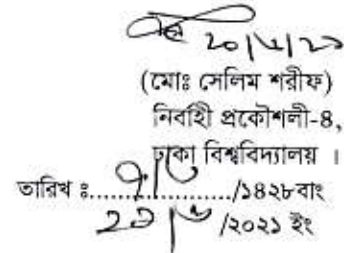 ২০/৬/২১
(মোঃ সেলিম শরীফ)
নির্বাহী প্রকৌশলী-৪,
ঢাকা বিশ্ববিদ্যালয় ।
তারিখ ঃ....................../১৪২৮বাং
/২০২১ ইং